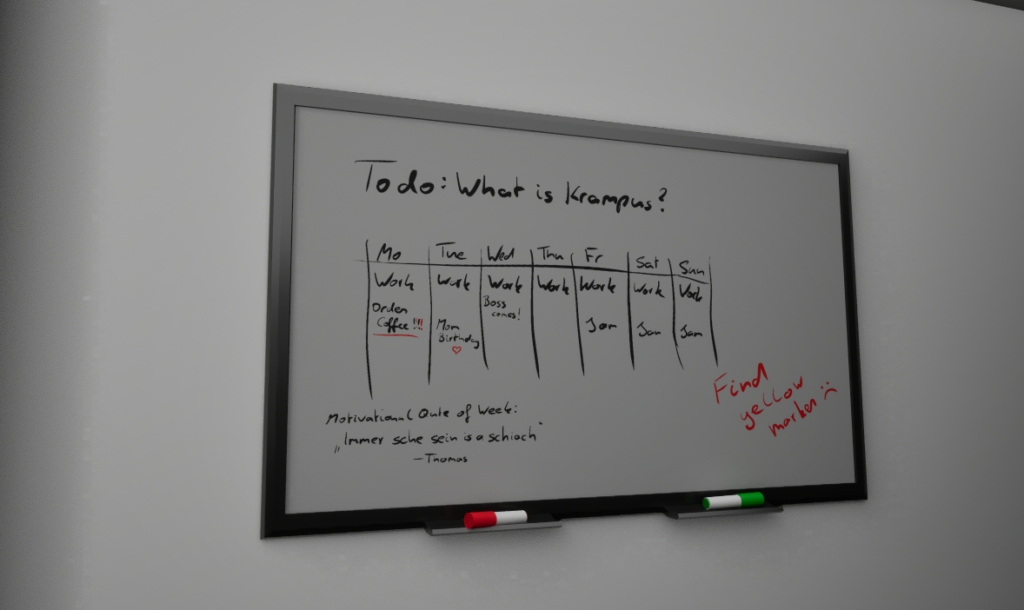 Todo: What is Krampus?
Mo Tue Wed Thu Fr Sat Sun
Work Work Work Work Work Work Work
Order Coffee!!!
Mom Birthday ♡
Boss comes!
Jam Jam Jam
Find
yellow
marker :(
Motivational Qute of Week:
„Immer sche sein is a schiach"
- Thomas